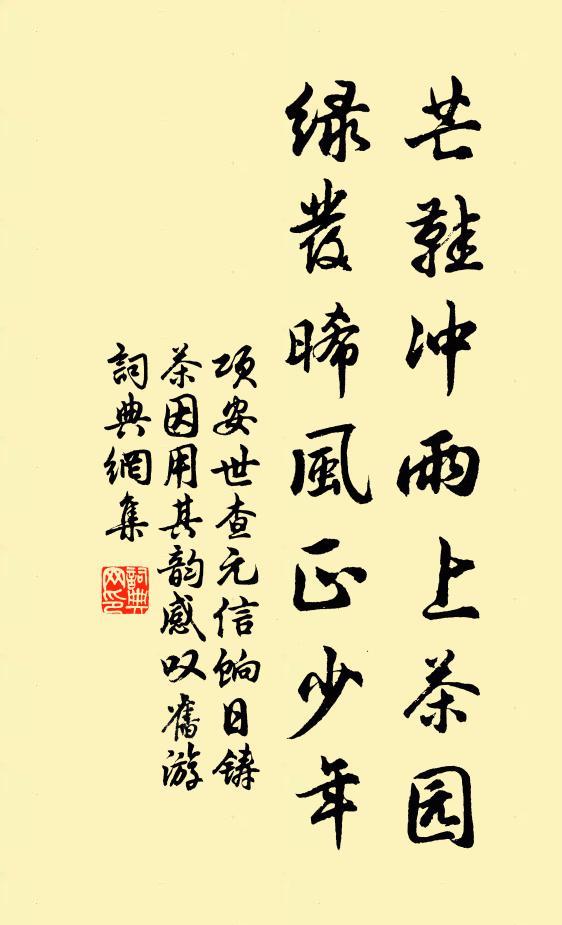 芒鞋冲雨上茶园
绿发晞風正少年
项安世查元信饷日铸
茶因用其韵感叹舊游
詞典網集
詞典
网印